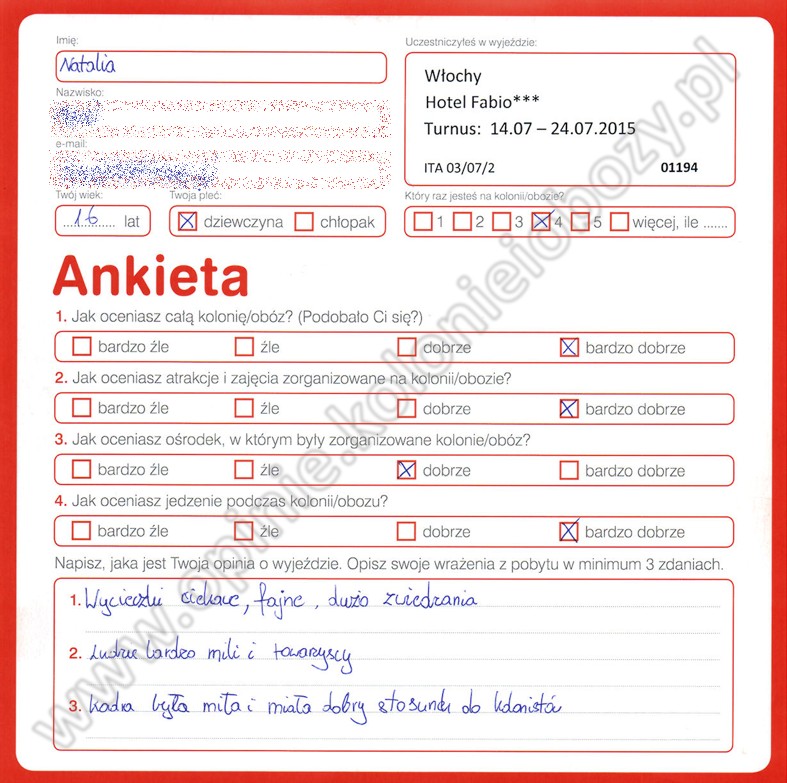 Imię:
Natalia
Nazwisko:
e-mail:
Twój wiek:
16 lat
Twoja płeć:
dziewczyna chłopak
Uczestniczyłeś w wyjeździe:
Włochy
Hotel Fabio***
Turnus: 14.07 – 24.07.2015
ITA 03/07/2 01194
Który raz jesteś na kolonii/obozie?
1 2 3 4 5 więcej, ile .......
Ankieta
1. Jak oceniasz całą kolonię/obóz? (Podobało Ci się?)
bardzo źle źle dobrze bardzo dobrze
2. Jak oceniasz atrakcje i zajęcia zorganizowane na kolonii/obozie?
bardzo źle źle dobrze bardzo dobrze
3. Jak oceniasz ośrodek, w którym były zorganizowane kolonie/obóz?
bardzo źle źle dobrze bardzo dobrze
4. Jak oceniasz jedzenie podczas kolonii/obozu?
bardzo źle źle dobrze bardzo dobrze
Napisz, jaka jest Twoja opinia o wyjeździe. Opisz swoje wrażenia z pobytu w minimum 3 zdaniach.
1. Wycieczki ciekawe, fajne, dużo zwiedzania
2. Ludzie bardzo mili i towarzyscy
3. Kadra była miła i miała dobry stosunek do kolonistów
www.opinie.kolonieiobozy.pl